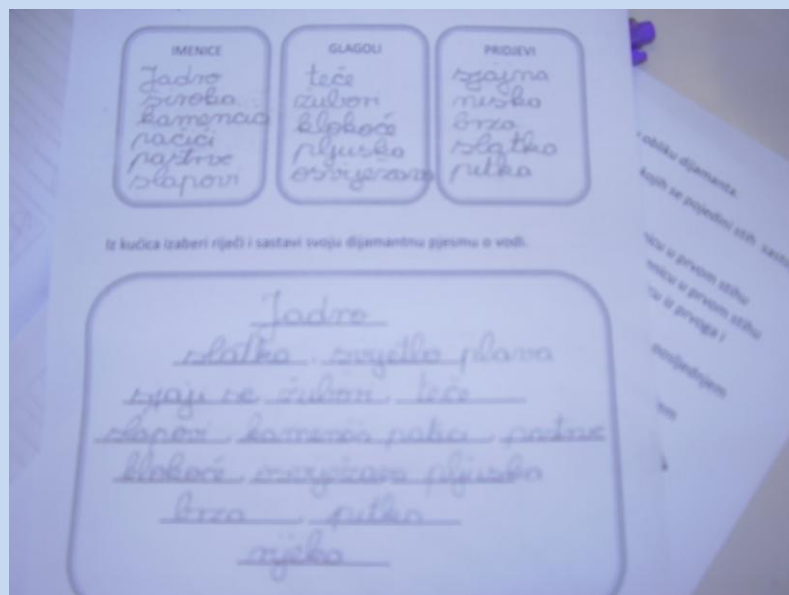 IMENICE
Jadro
široka
kamenčić
pačići
pastrve
slapovi
GLAGOLI
teče
žubori
klokoće
pljuska
osvježava
PRIDJEVI
sjajna
niska
brza
slatka
pitka
Iz kućica izaberi riječi i sastavi svoju dijamantnu pjesmu o vodi.
Jadro
slatka, svijetlo plava
sjaji se, žubori, teče
slapovi, kamenčić, patići, pastrve
klokoće, osvježava, pljuska
brza, pitka
rijeka
u obliku dijamanta.
kojih se pojedini stih
u prvom stihu
u prvom stihu
iz prvoga i
posljednjem